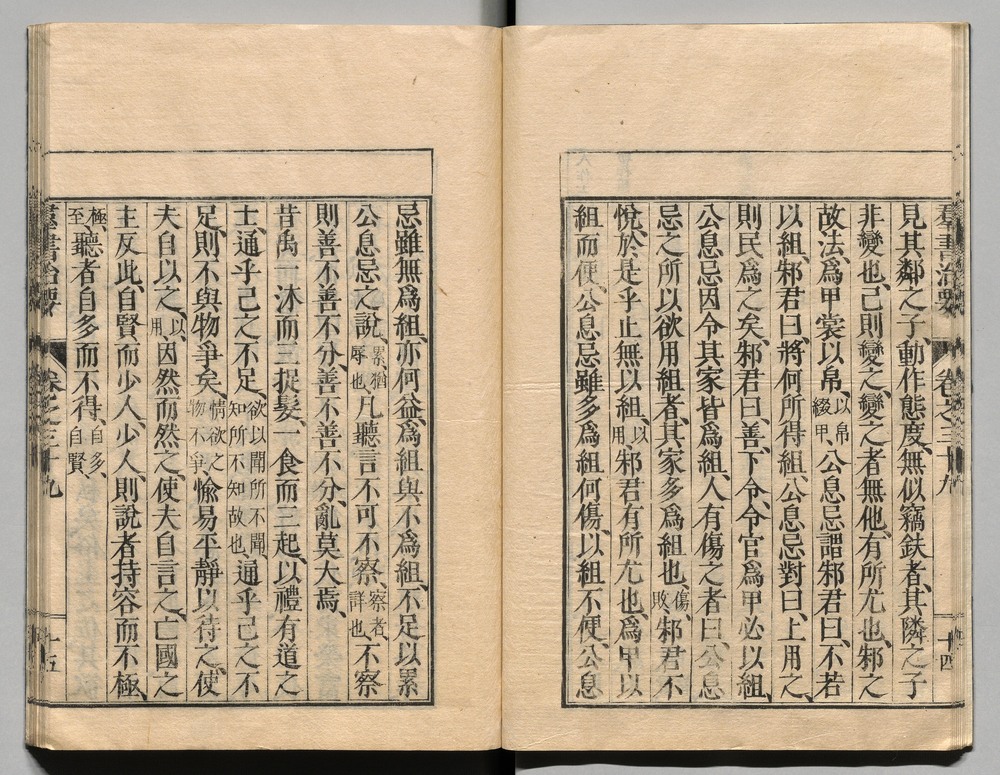 見其鄰之子動作態度無似竊鈇者其隣之子
非變也己則變之變之者無他有所尤也邾之
故法爲甲裳以帛以帛綴甲公息忌謂邾君曰不若
以組邾君曰將何所得組公息忌對曰上用之
則民爲之矣邾君曰善下令令官爲甲必以組
公息忌因令其家皆爲組人有傷之者曰公息
忌之所以欲用組者其家多爲組也傷敗邾君不
悅於是乎止無以組以用邾君有所尤也爲甲以
組而便公息忌雖多爲組何傷以組不便公息
羣書治要 卷之三十九 十四
忌雖無爲組亦何益爲組與不爲組不足以累
公息忌之說累猶辱也凡聽言不可不察察者詳也不察
則善不善不分善不善不分亂莫大焉
昔禹一沐而三捉髮一食而三起以禮有道之
士通乎己之不足欲以聞所不聞知所不知故也通乎己之不
足則不與物爭矣情欲之物不爭愉易平靜以待之使
夫自以之以用因然而然之使夫自言之亡國之
主反此自賢而少人少人則說者持容而不極
極至聽者自多而不得自多自賢
羣書治要 卷之三十九 十五